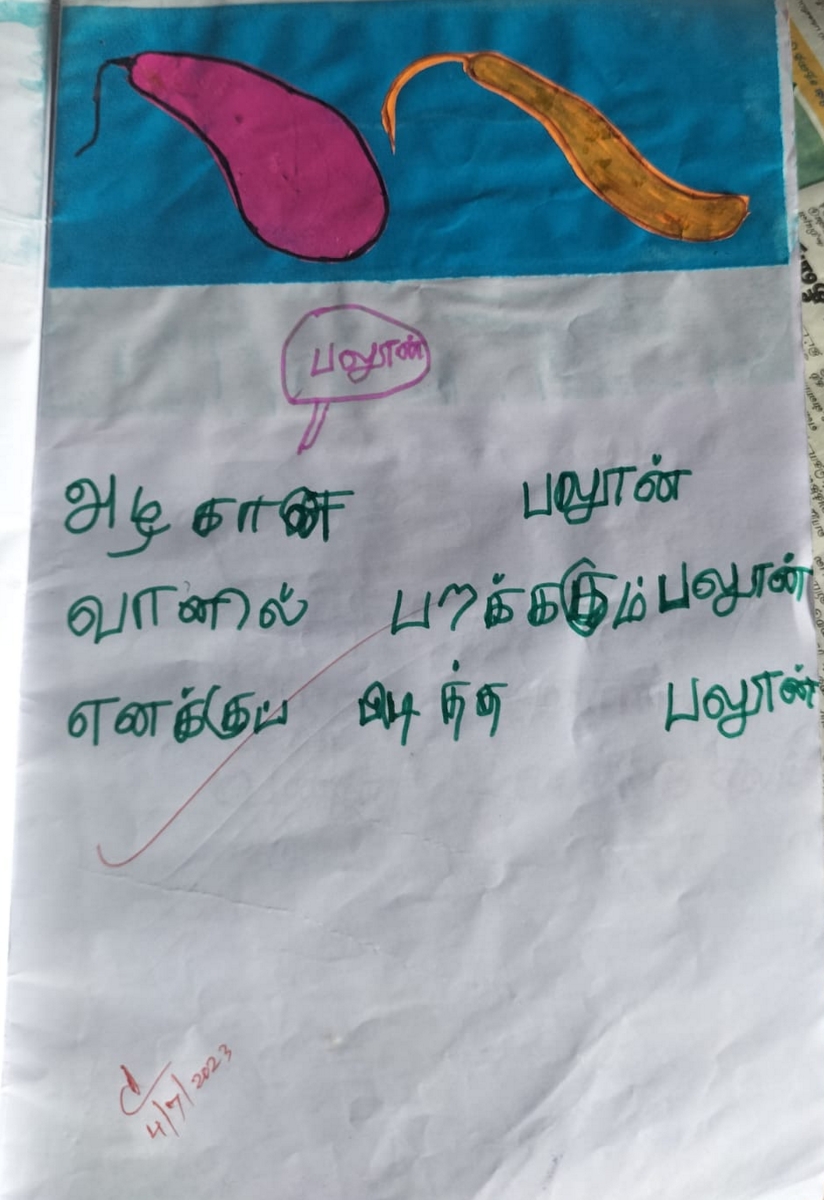 பலூன்
அழகான பலூன்
வானில் பறக்ககும் பலூன்
எனக்குப் பிடித்த பலூன்
4/7/2023